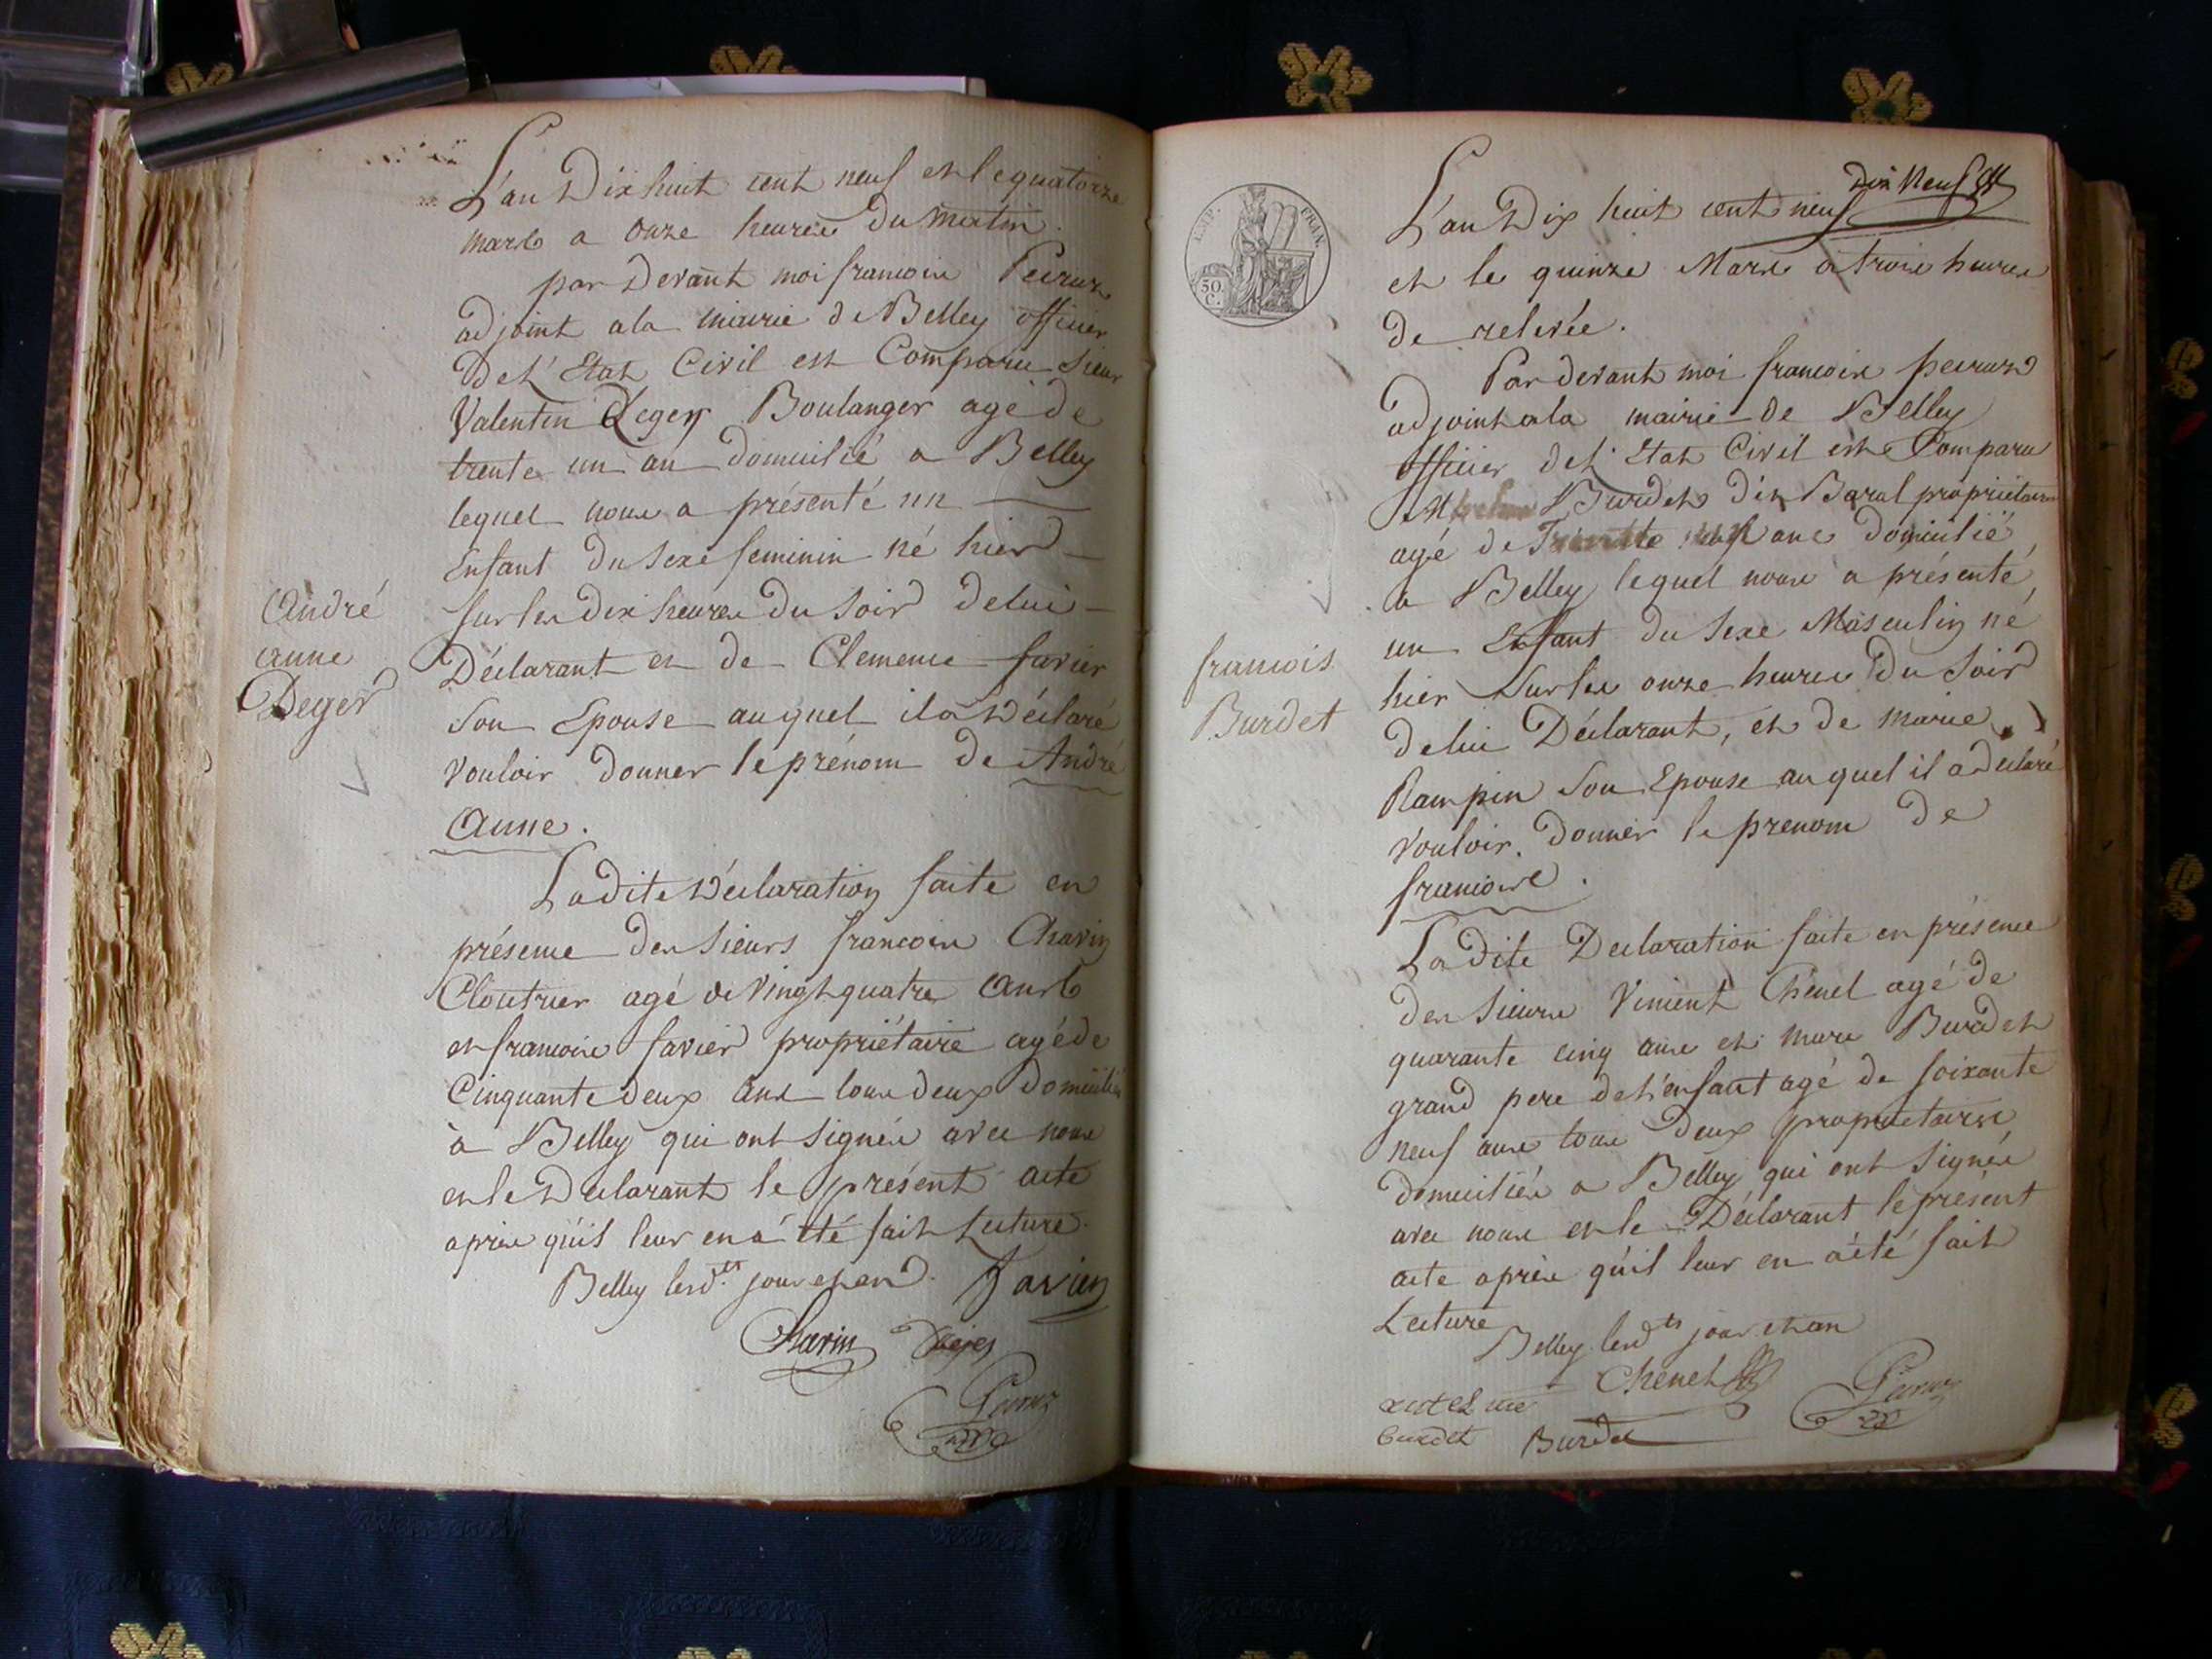 L'an Dix huit cent neuf et le quatorze
mars a onze heures du matin.
par devant moi francois Peirus
adjoint a la mairie de Belley officier
de l'Etat Civil est Comparu Sieur
Valentin Deger Boulanger agé de
trente un an domicilié a Belley
lequel nous a présenté un
Enfant du Sexe feminin né hier
sur les dix heures du Soir de lui
Déclarant et de Clemence favier
Son Epouse auquel il a déclaré
vouloir donner le prénom de André
Anne.
La dite Déclaration faite en
présence des Sieurs francois Chavin
Cloutrier agé de vingt quatre ans
et francois favier propriétaire agé de
Cinquante deux ans tous deux domiciliés
à Belley qui ont signés avec nous
et le Déclarant le présent acte
après qu'il leur en a été fait Lecture.
Belley lesd.ts jour et an. Favier
Chavin Deger
Peirus
André
anne
Deger
Dix Neuf
EMP. FRAN.
50.
C.
L'an Dix huit cent neuf
et le quinze Mars a trois heures
de relevée.
Par devant moi francois peirus
adjoint a la mairie de Belley
officier de l'Etat Civil est Comparu
Burdet dit Baral propriétaire
agé de Trente neuf ans domicilié
a Belley lequel nous a présenté,
un Enfant du Sexe Masculin né
hier Sur les onze heures du Soir
de lui Déclarant, et de marie
Rampin Son Epouse auquel il a declaré
vouloir donner le prenom de
francois.
La dite Declaration faite en présence
des Sieurs Vincent Chenel agé de
quarante cinq ans et marc Burdet
grand pere de l'enfant agé de soixante
neuf ans tous deux propriétaires
domiciliés a Belley qui ont signés
avec nous et le Déclarant le présent
acte après qu'il leur en a été fait
Lecture
Belley lesd.ts jour et an
Chenel
Peirus
antelme
burdet Burdet
francois
Burdet